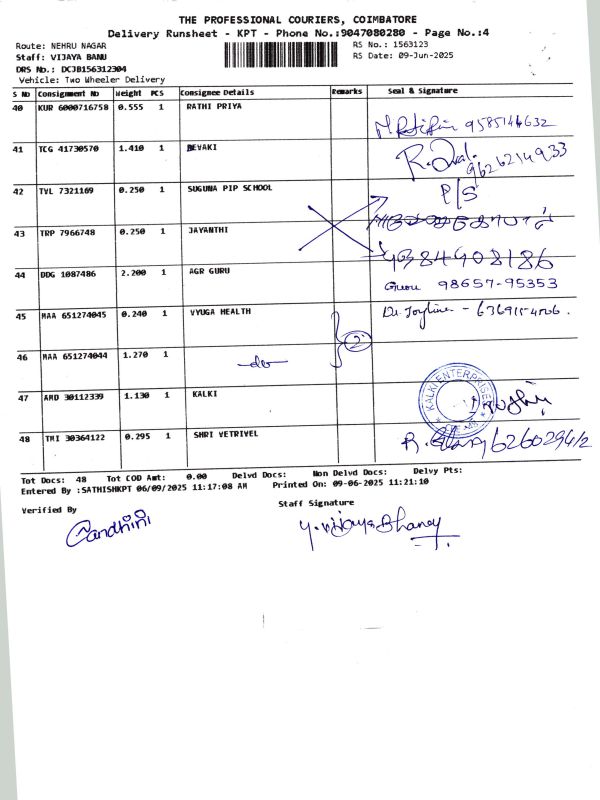 THE PROFESSIONAL COURIERS, COIMBATORE
Delivery Runsheet - KPT - Phone No.:9047080280 - Page No.:4
Route: NEHRU NAGAR
RS No.: 1563123
Staff: VIJAYA BANU
RS Date: 09-Jun-2025
DRS No.: DCJB156312304
Vehicle: Two Wheeler Delivery
S No Consignment No Weight PCS Consignee Details Remarks Seal & Signature
40 KUR 6000716758 0.555 1 RATHI PRIYA
9585144632
41 TCG 41730570 1.410 1 DEVAKI
9626214933
42 TVL 7321169 0.250 1 SUGUNA PIP SCHOOL P/S
43 TRP 7966748 0.250 1 JAYANTHI
44 DDG 1087486 2.200 1 AGR GURU
98657-95353
45 MAA 651274045 0.240 1 VYUGA HEALTH
46 MAA 651274044 1.270 1 -do- 2
47 AMD 30112339 1.130 1 KALKI KALKI ENTERPRISES
48 TMI 30364122 0.295 1 SHRI VETRIVEL
Tot Docs: 48 Tot COD Amt: 0.00 Delvd Docs: Non Delvd Docs: Delvy Pts:
Entered By :SATHISHKPT 06/09/2025 11:17:08 AM Printed On: 09-06-2025 11:21:10
Verified By
Staff Signature
Gandhini